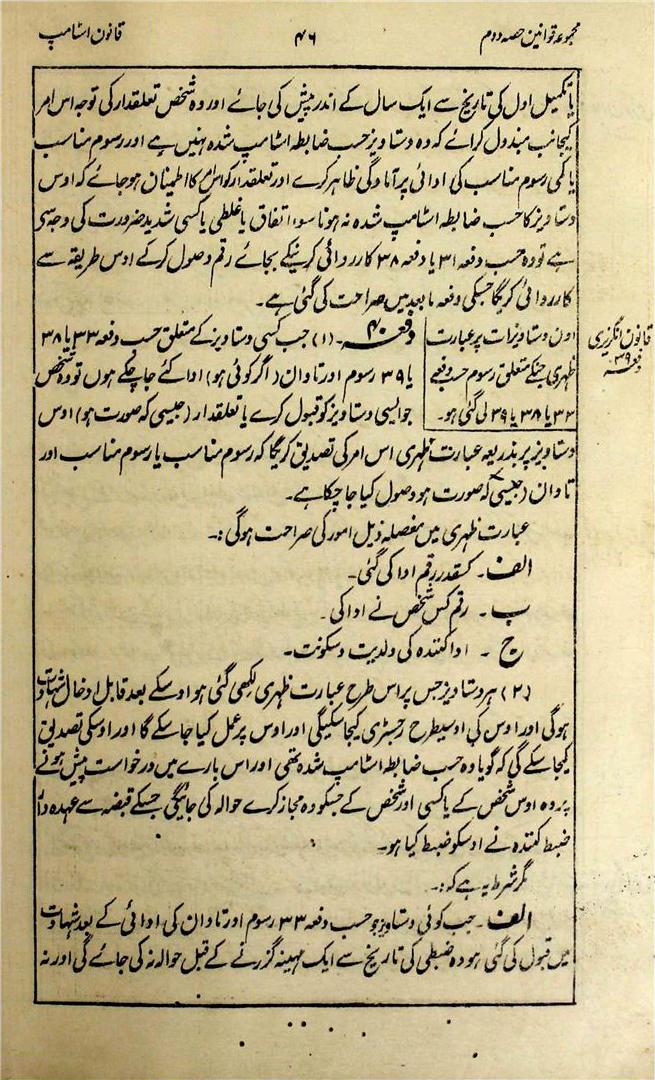 مجموعہ قوانین حصہ دوم
۴۶
قانون اسٹامپ
یا تکمیل اول کی تاریخ سے ایک سال کے اندر پیش کی جائے اور وہ شخص تعلقدار کی توجہ اس امر
کیجانب مبذول کرائے کہ وہ دستاویز حسب ضابطہ اسٹامپ شدہ نہیں ہے اور رسوم مناسب
یا کمی رسوم مناسب کی ادائی پر آمادگی ظاہر کرے اور تعلقدار کو اس کا اطمینان ہو جائے کہ اوس
دستاویز کا حسب ضابطہ اسٹامپ شدہ نہ ہونا سوء اتفاق یا غلطی یا کسی شدید ضرورت کی وجہ سی
ہے تو وہ حسب دفعہ ۳۱ یا دفعہ ۳۸ کارروائی کرنیکے بجائے رقم وصول کر کے اوس طریقہ سے
کارروائی کریگا جسکی دفعہ مابعد میں صراحت کی گئی ہے۔
قانون انگریزی
دفعہ ۳۹
اون دستاویزات پر عبارت
ظہری جنکے متعلق رسوم حسب دفعہ
۳۳ یا ۳۸ یا ۳۹ لی گئی ہو۔
دفعہ ۴۰۔ (۱) جب کسی دستاویز کے متعلق حسب دفعہ ۳۳ یا ۳۸
یا ۳۹ رسوم اور تاوان (اگر کوئی ہو) ادا کئے جا چکے ہوں تو وہ شخص
جو ایسی دستاویز کو قبول کرے یا تعلقدار (جیسی کہ صورت ہو) اوس
دستاویز پر بذریعہ عبارت ظہری اس امر کی تصدیق کریگا کہ رسوم مناسب یا رسوم مناسب اور
تاوان (جیسی کہ صورت ہو) وصول کیا جا چکا ہے۔
عبارت ظہری میں مفصلہ ذیل امور کی صراحت ہوگی :۔
الف۔ کسقدر رقم ادا کی گئی۔
ب۔ رقم کس شخص نے ادا کی۔
ج ۔ ادا کنندہ کی ولدیت و سکونت۔
(۲) ہر دستاویز جس پر اس طرح عبارت ظہری لکھی گئی ہو اوسکے بعد قابل ادخال شہادت
ہوگی اور اوس کی اوسیطرح رجسٹری کیجا سکیگی اور اوس پر عمل کیا جا سکے گا اور اوسکی تصدیق
کیجا سکے گی کہ گویا وہ حسب ضابطہ اسٹامپ شدہ تھی اور اس بارے میں درخواست پیش ہونے
پر وہ اوس شخص کے یا کسی اور شخص کے جسکو وہ مجاز کرے حوالہ کی جائیگی جسکے قبضہ سے عہدہ دار
ضبط کنندہ نے اوسکو ضبط کیا ہو۔
مگر شرط یہ ہے کہ :۔
الف۔ جب کوئی دستاویز جو حسب دفعہ ۳۳ رسوم اور تاوان کی ادائی کے بعد شہادت
میں قبول کی گئی ہو وہ ضبطی کی تاریخ سے ایک مہینہ گزرنے کے قبل حوالہ نہ کی جائے گی اور نہ